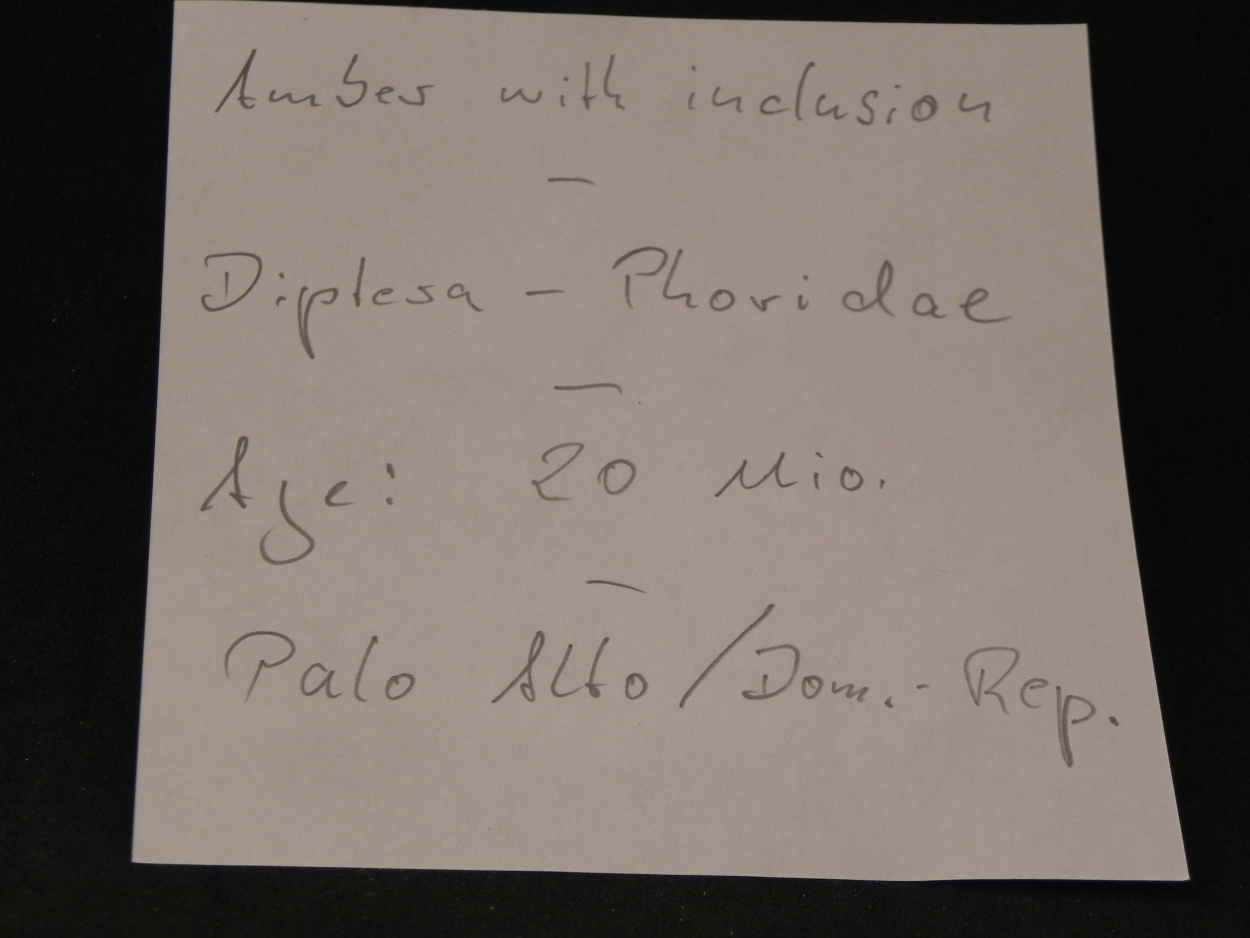 Amber with inclusion
—
Diptera - Phoridae
—
Age: 20 Mio.
—
Palo Alto / Dom.- Rep.